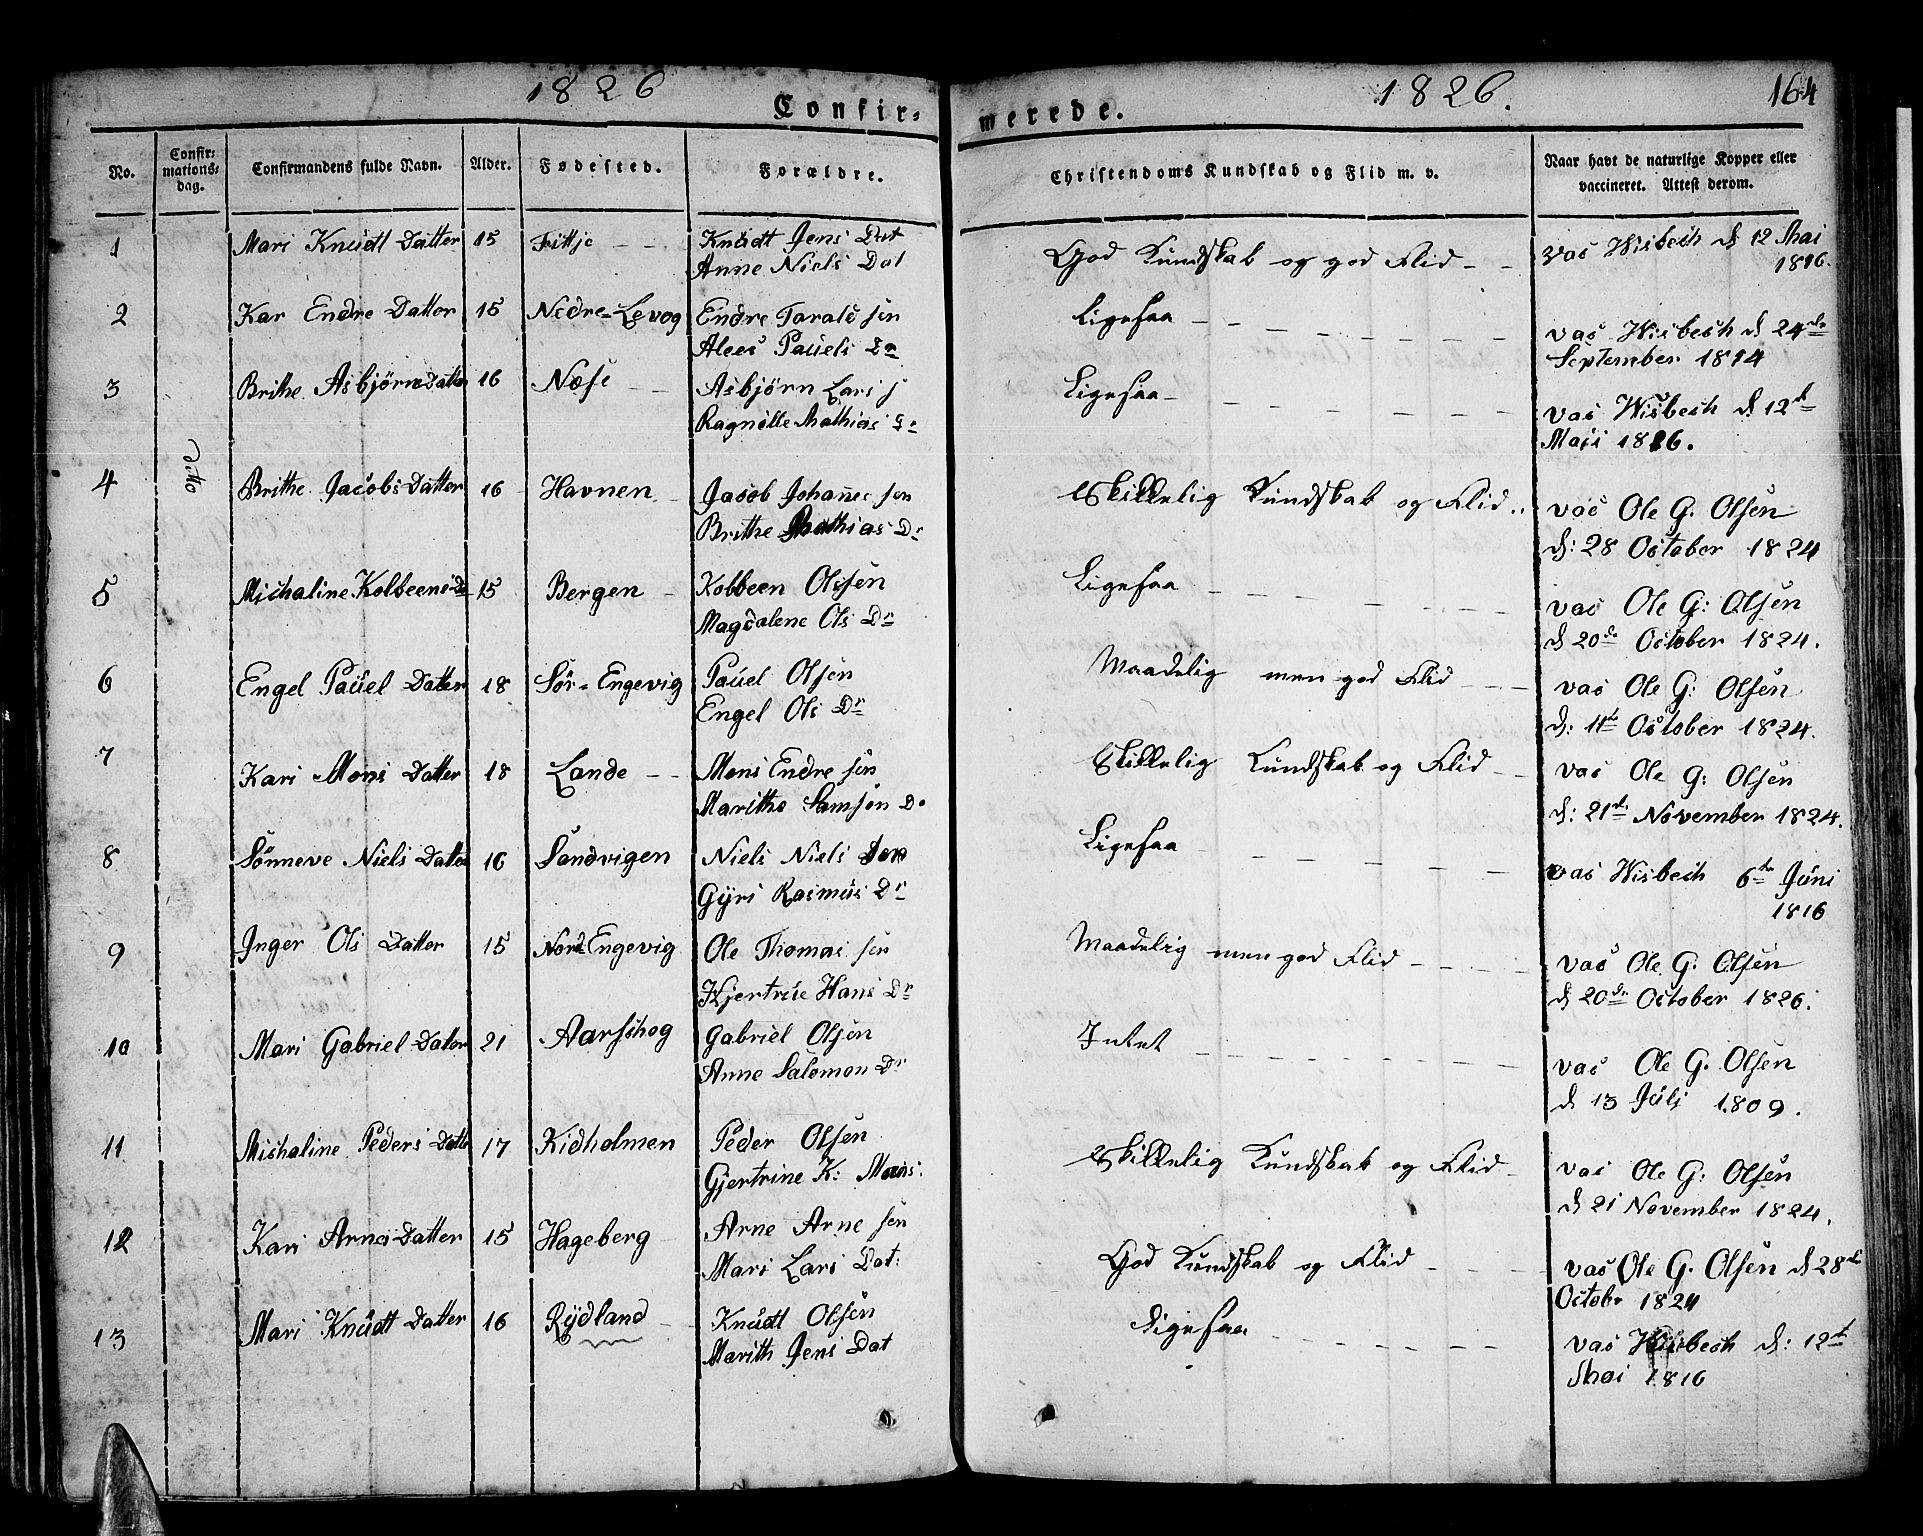 1826
1826.
164
Confir-
merede.
No.
Confir-
mations-
dag.
Confirmandens fulde Navn.
Alder.
Fødested.
Forældre.
Christendoms Kundskab og Flid m. v.
Naar havt de naturlige Kopper eller
vaccineret. Attest derom.
ditto
1 Mari Knudt Datter 15 Fittje Knudt Jens Dat God Kundskab og god Flid vac Wisbech d 12 Mai
Anne Niels Dat 1816.
2 Kar Endre Datter 15 Nedre-Levog Endre Tarald sen Ligesaa vac Wisbech d 24de
Alees Pauels Da September 1814
3 Brithe Asbjörns Datter 16 Nese Asbjörn Lars s Ligesaa vac Wisbech d. 12te
Ragnilte Mathias Da Maji 1816.
4 Brithe Jacobs Datter 16 Havnen Jacob Johannes sen Skikkelig Kundskab og Flid vac Ole G. Olsen
Brithe Mathias Dr d: 28 October 1824
5 Michaline Kolbeens Da 15 Bergen Kobbeen Olssen Ligesaa vac Ole G: Olsen
Magdalene Ols Dr d 20de October 1824.
6 Engel Pauel Datter 18 Sör-Engevig Pauel Olsen Maadelig men god Flid vac Ole G: Olsen
Engel Ols Dr d: 11te October 1824.
7 Kari Mons Datter 18 Lande Mons Endre sen Skikkelig Kundskab og Flid vac Ole G: Olsen
Marithe Samson D. d: 21de November 1824.
8 Sönneve Niels Datter 16 Sandvigen Niels Niels Sen Ligesaa vac Wisbech 6te Juni
Gyri Rasmus Dr 1816
9 Inger Ols Datter 15 Nord Engevig Ole Thomas sen Maadelig men god Flid vac Ole G. Olsen
Kjertrue Hans Dr d 20de October 1826.
10 Mari Gabriel Dater 21 Aarschog Gabriel Olsen Intet vac Ole G. Olsen
Anne Salomon Dr d 13 Juli 1809.
11 Michaline Peders Datte 17 Kidholmen Peder Olsen Skikkelig Kundskab og Flid vac Ole G: Olsen
Gjertrine K: Mons: d 21 November 1824.
12 Kari Arnes Datter 15 Hageberg Arne Arne sen God Kundskab og Flid vac Ole G. Olsen d 28de
Mari Lars Dat: Octobr 1824
13 Mari Knudt Datter 16 Rydland Knudt Olsen Ligesaa vac Wisbech d: 12te
Marith Jens Dat Mai 1816